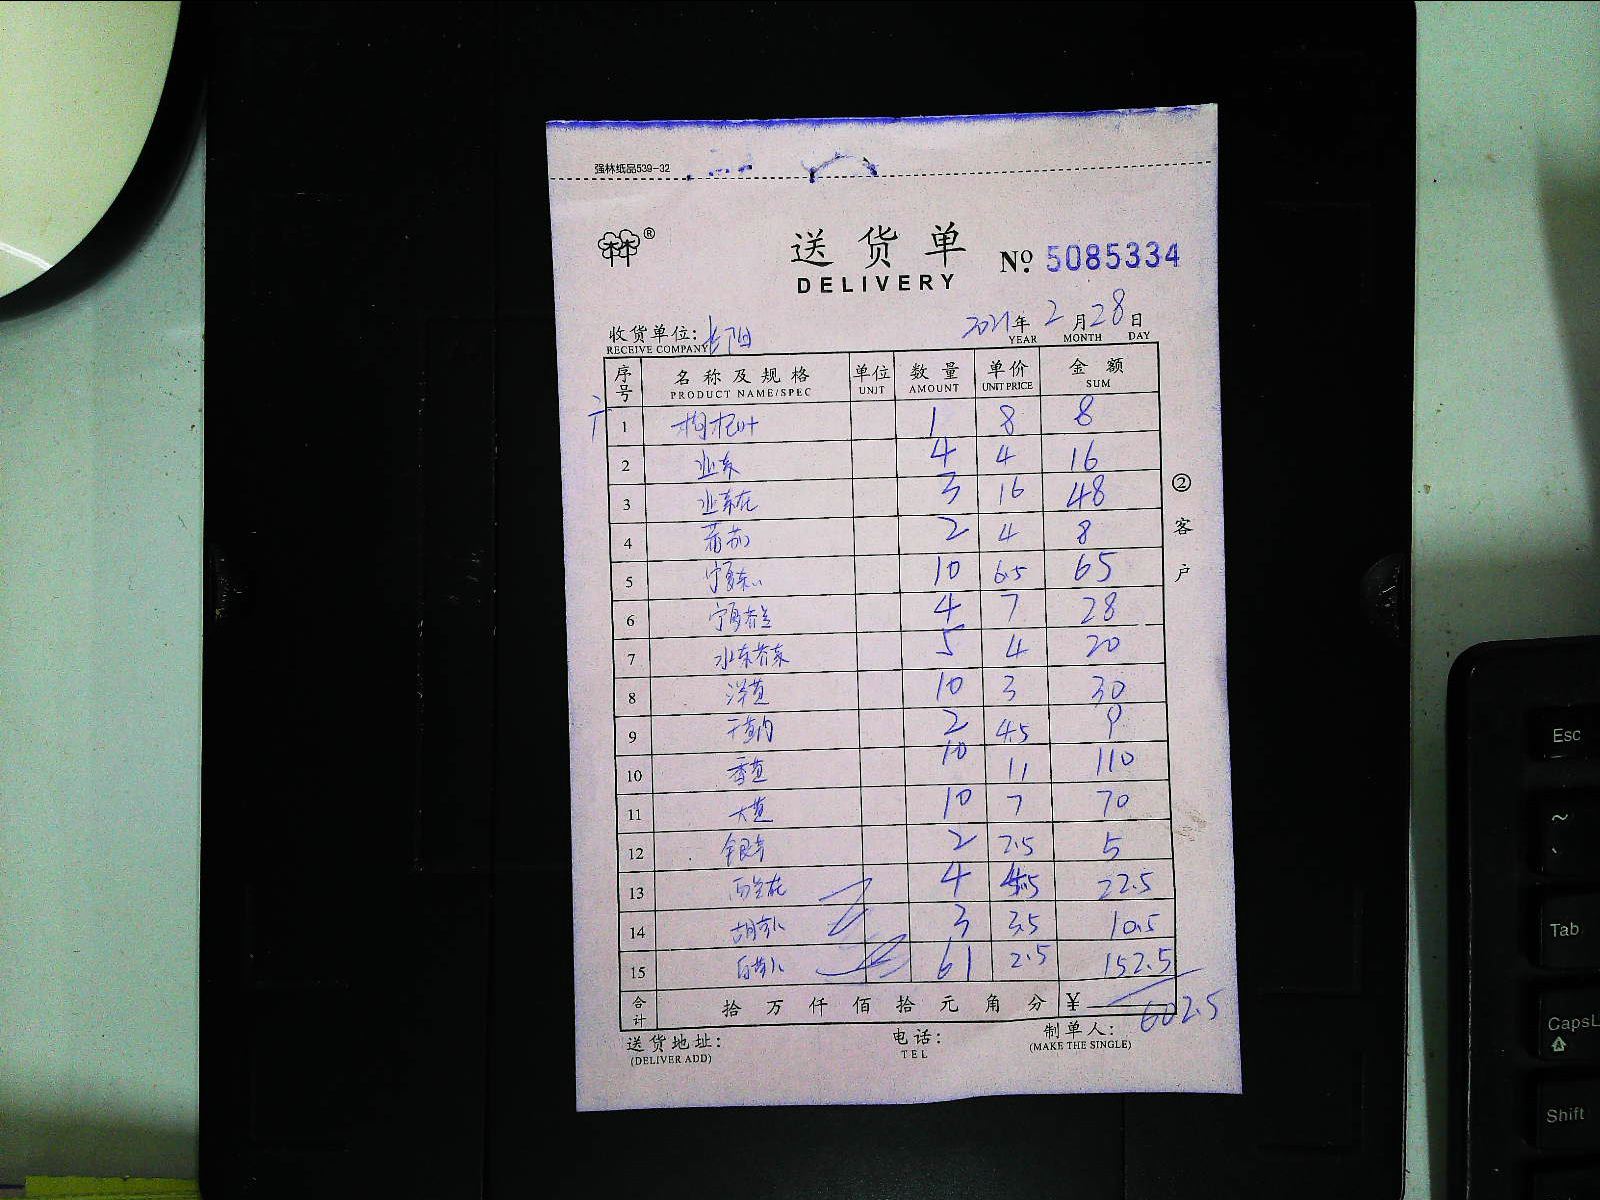 强林纸品539-32
®
送货单
DELIVERY
No. 5085334
收货单位:
RECEIVE COMPANY
2021年 2月28日
YEAR MONTH DAY
序号 名称及规格 单位 数量 单价 金额
PRODUCT NAME/SPEC UNIT AMOUNT UNIT PRICE SUM
1 枸杞叶 1 8 8
2 4 4 16
3 3 16 48
4 蕃茄 2 4 8
5 10 6.5 65
6 4 7 28
7 水东芥菜 5 4 20
8 洋葱 10 3 30
9 2 4.5 9
10 香葱 10 11 110
11 大葱 10 7 70
12 银芽 2 2.5 5
13 西兰花 4 5.5 22.5
14 3 3.5 10.5
15 61 2.5 152.5
合计 拾万仟佰拾元角分 ¥ 602.5
送货地址: 电话: 制单人:
(DELIVER ADD) TEL (MAKE THE SINGLE)
②客户
Esc
~
Tab
CapsL
Shift